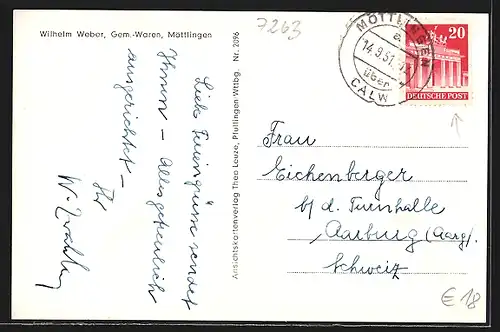 Wilhelm Weber, Gem.-Waren, Möttlingen
7263
MÖTTLINGEN
a
14.9.51
über
CALW
20
DEUTSCHE POST
Liebe Feriengrüsse sendet
Ihnen – Alles getreulich
ausgerichtet –
Ihr
W.
Ansichtskartenverlag Theo Leuze, Pfullingen Wttbg. Nr. 2096
Frau
Eichenberger
b/d. Turnhalle
Aarburg (Aarg).
Schweiz
€ 18